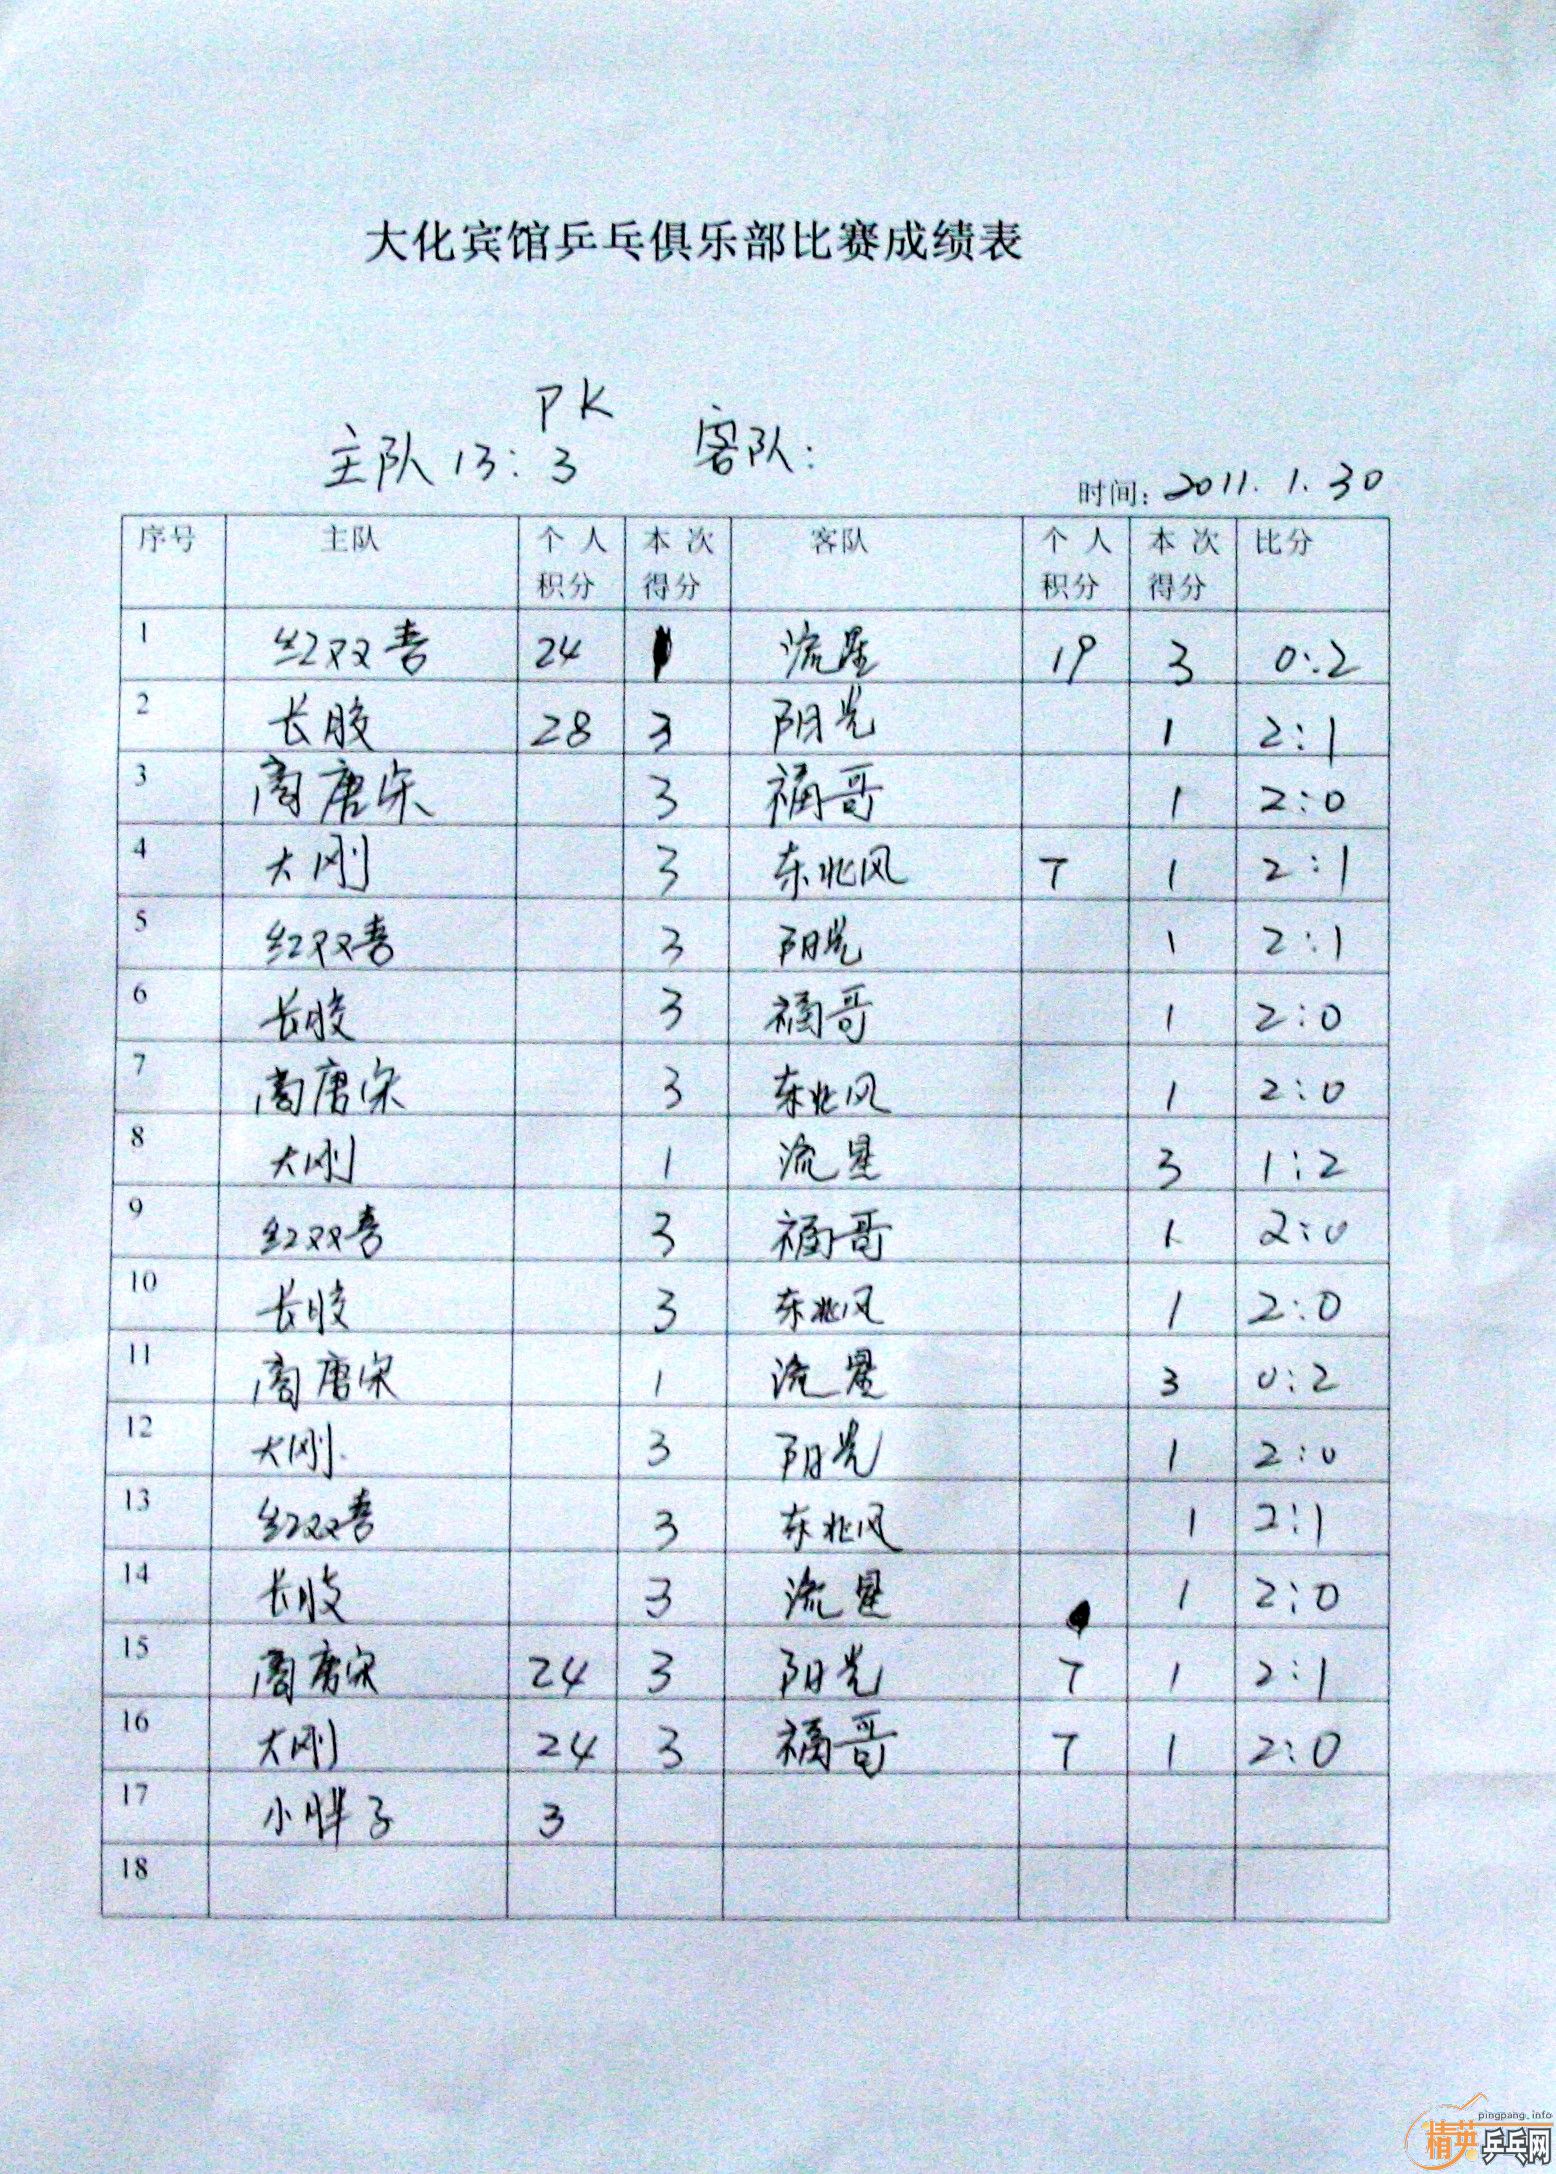 大化宾馆乒乓俱乐部比赛成绩表
PK
主队 13：3 客队：
时间：2011.1.30
序号 主队 个人积分 本次得分 客队 个人积分 本次得分 比分
1 红双喜 24 1 流星 19 3 0:2
2 长胶 28 3 阳光 1 2:1
3 商唐宋 3 福哥 1 2:0
4 大刚 3 东北风 7 1 2:1
5 红双喜 3 阳光 1 2:1
6 长胶 3 福哥 1 2:0
7 商唐宋 3 东北风 1 2:0
8 大刚 1 流星 3 1:2
9 红双喜 3 福哥 1 2:0
10 长胶 3 东北风 1 2:0
11 商唐宋 1 流星 3 0:2
12 大刚 3 阳光 1 2:0
13 红双喜 3 东北风 1 2:1
14 长胶 3 流星 1 2:0
15 商唐宋 24 3 阳光 7 1 2:1
16 大刚 24 3 福哥 7 1 2:0
17 小胖子 3
18
pingpang.info
精英乒乓网